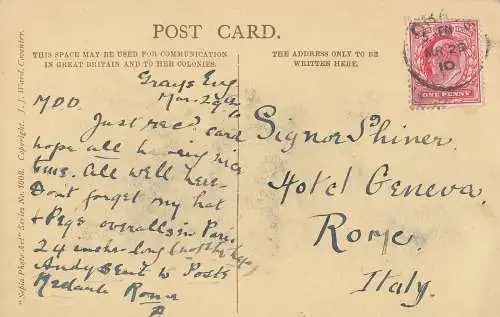 POST CARD.
THIS SPACE MAY BE USED FOR COMMUNICATION
IN GREAT BRITAIN AND TO HER COLONIES.
THE ADDRESS ONLY TO BE
WRITTEN HERE.
"Sepia Photo Art" Series No. 1008. Copyright. J. J. Ward, Coventry.
Grays Eng
Mar. 29th
10
M.D.D.
Just rec'd card
hope all having nice
time. All well here.
Dont forget my hat
& Pegs overalls in Paris
24 inches long
Andy sent to Poste
Restante Roma
Signor Shiner.
Hotel Geneva.
Rome.
Italy.
10
ONE PENNY